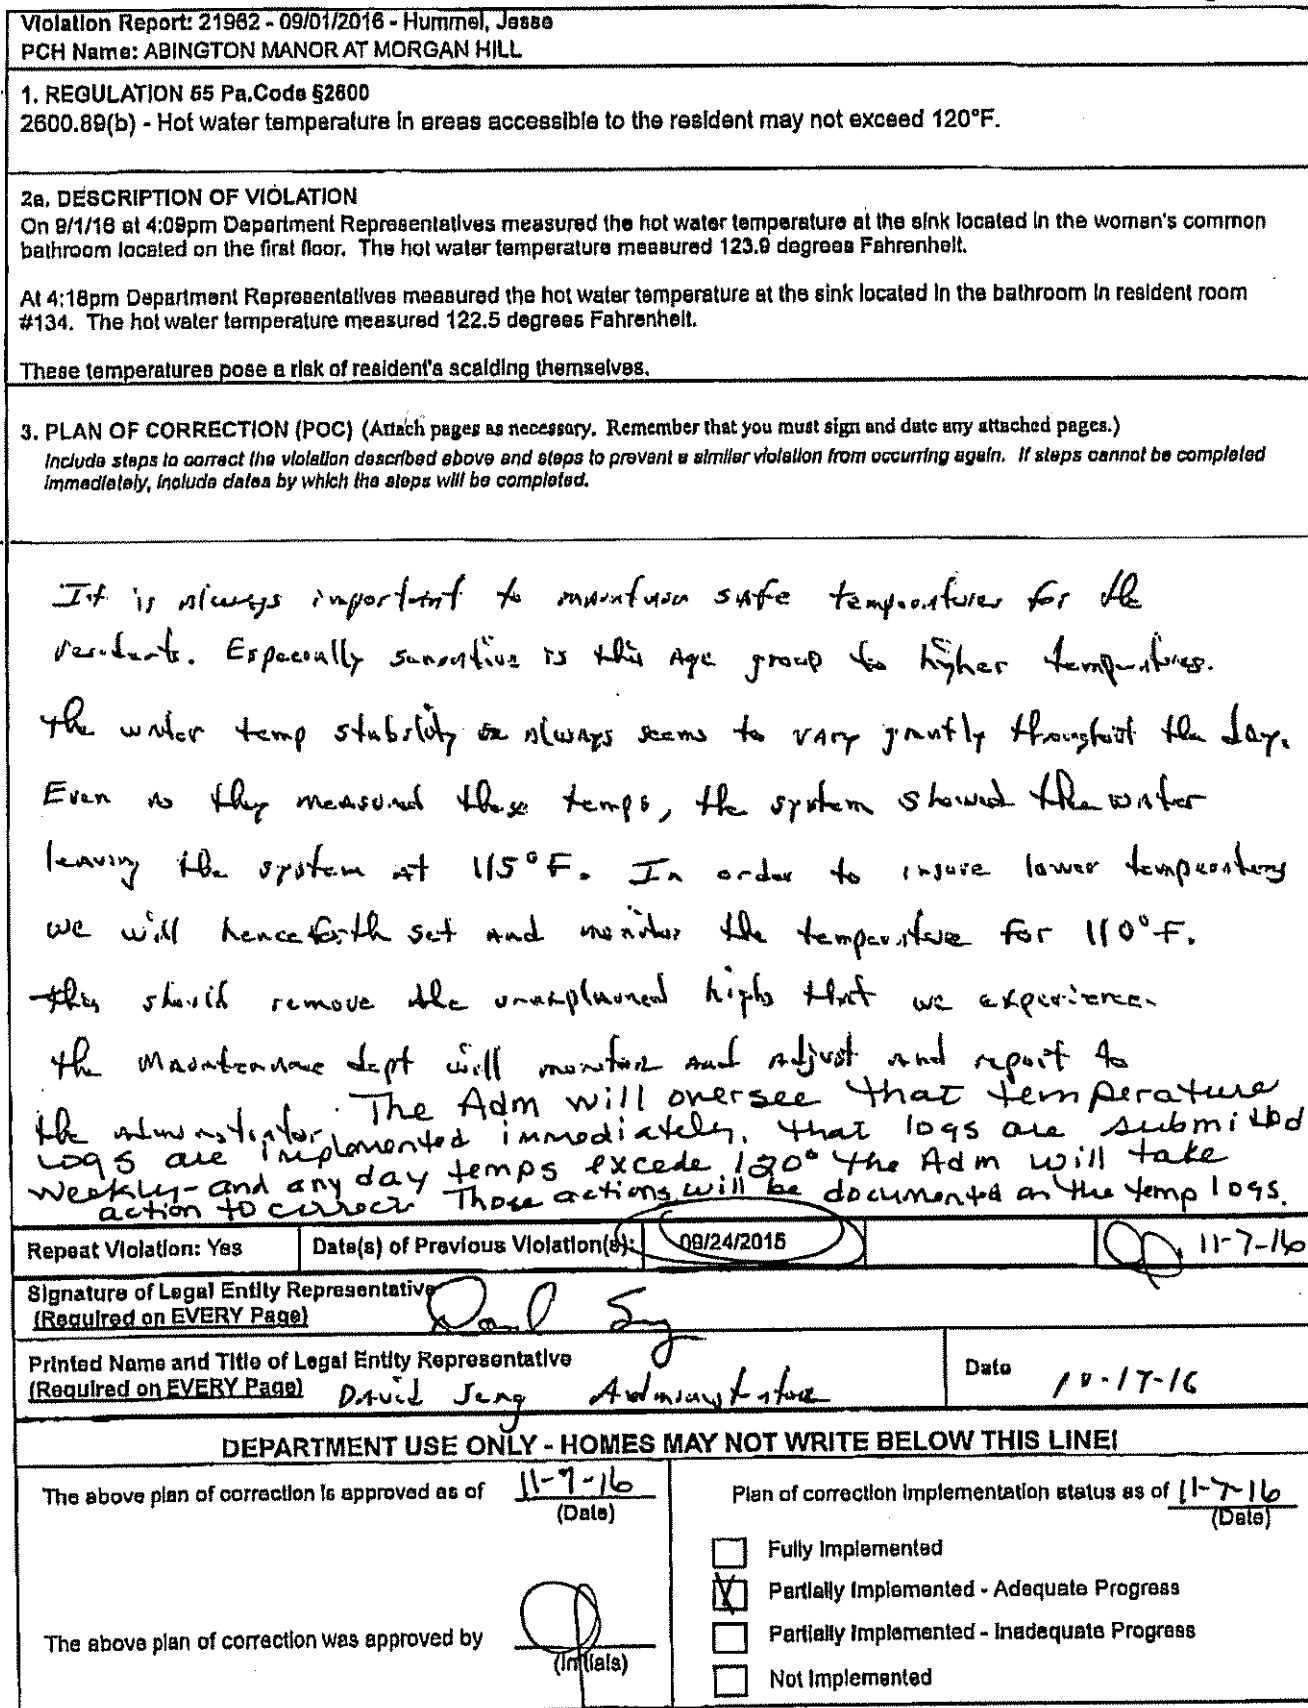 Violation Report: 21962 - 09/01/2016 - Hummel, Jesse
PCH Name: ABINGTON MANOR AT MORGAN HILL
1. REGULATION 55 Pa.Code §2600
2600.89(b) - Hot water temperature in areas accessible to the resident may not exceed 120°F.
2a. DESCRIPTION OF VIOLATION
On 9/1/16 at 4:09pm Department Representatives measured the hot water temperature at the sink located in the woman's common
bathroom located on the first floor. The hot water temperature measured 123.9 degrees Fahrenheit.
At 4:18pm Department Representatives measured the hot water temperature at the sink located in the bathroom in resident room
#134. The hot water temperature measured 122.5 degrees Fahrenheit.
These temperatures pose a risk of resident's scalding themselves.
3. PLAN OF CORRECTION (POC) (Attach pages as necessary. Remember that you must sign and date any attached pages.)
Include steps to correct the violation described above and steps to prevent a similar violation from occurring again. If steps cannot be completed
immediately, include dates by which the steps will be completed.
It is always important to maintain safe temperatures for the
residents. Especially sensitive is this age group to higher temperatures.
The water temp stability always seems to vary greatly throughout the day.
Even as they measured these temps, the system showed the water
leaving the system at 115°F. In order to insure lower temperatures
we will henceforth set and monitor the temperature for 110°F.
This should remove the unexplained highs that we experience.
The Maintenance dept will monitor and adjust and report to
the administrator. The Adm will oversee that temperature
logs are implemented immediately, that logs are submitted
weekly - and any day temps excede 120° the Adm will take
action to correct. Those actions will be documented on the temp logs.
Repeat Violation: Yes Date(s) of Previous Violation(s): 09/24/2015 11-7-16
Signature of Legal Entity Representative
(Required on EVERY Page)
Printed Name and Title of Legal Entity Representative
(Required on EVERY Page) David Jeng Administrator Date 10-17-16
DEPARTMENT USE ONLY - HOMES MAY NOT WRITE BELOW THIS LINE!
The above plan of correction is approved as of 11-7-16
(Date)
The above plan of correction was approved by
(Initials)
Plan of correction implementation status as of 11-7-16
(Date)
Fully Implemented
Partially Implemented - Adequate Progress
Partially Implemented - Inadequate Progress
Not Implemented